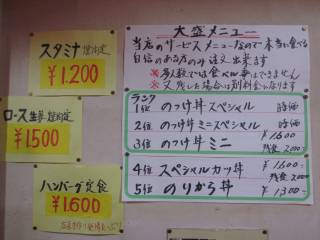 スタミナ焼肉定
¥1.200
ロース生姜焼定
¥1500
ハンバーグ定食
¥1.600
大盛メニュー
当店のサービスメニューなので本当に食べる
自信のある方のみ注文出来ます
※多人数では食べる事はできません
※又残した場合は別料金になります
ランク
1位 のっけ丼スペシャル 時価
2位 のっけ丼ミニスペシャル 時価
3位 のっけ丼ミニ ¥1600
残金 2000-
4位 スペシャルカツ丼 ¥1600-
残金 2000-
5位 のりから丼 ¥1300-